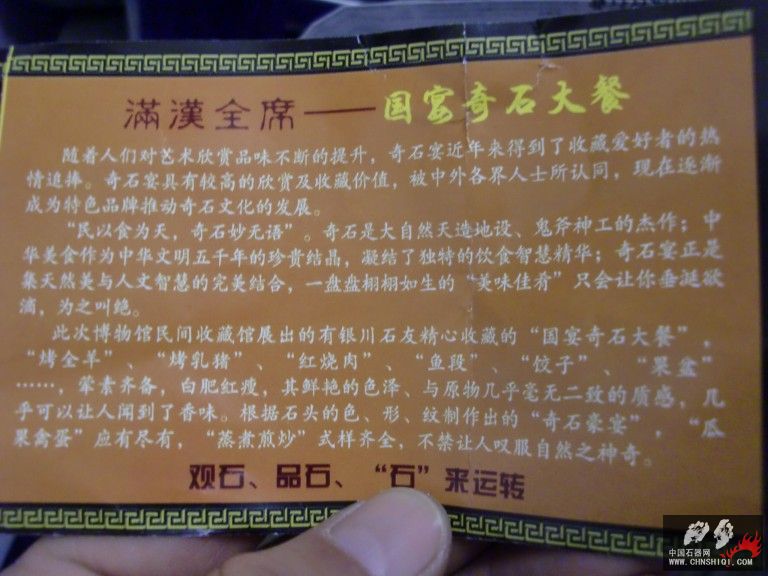 滿漢全席——国宴奇石大餐
随着人们对艺术欣赏品味不断的提升，奇石宴近年来得到了收藏爱好者的热
情追捧。奇石宴具有较高的欣赏及收藏价值，被中外各界人士所认同，现在逐渐
成为特色品牌推动奇石文化的发展。
“民以食为天，奇石妙无语”。奇石是大自然天造地设、鬼斧神工的杰作；中
华美食作为中华文明五千年的珍贵结晶，凝结了独特的饮食智慧精华；奇石宴正是
集天然美与人文智慧的完美结合，一盘盘栩栩如生的“美味佳肴”只会让你垂挺欲
滴，为之叫绝。
此次博物馆民间收藏馆展出的有银川石友精心收藏的“国宴奇石大餐”，
“烤全羊”、“烤乳猪”、“红烧肉”、“鱼段”、“饺子”、“果盆”
……，荤素齐备，白肥红瘦，其鲜艳的色泽、与原物几乎毫无二致的质感，几
乎可以让人闻到了香味。根据石头的色、形、纹制作出的“奇石豪宴”，“瓜
果禽蛋”应有尽有，“蒸煮煎炒”式样齐全，不禁让人叹服自然之神奇。
观石、品石、“石”来运转
中国石器网
WWW.CHNSHIQI.COM